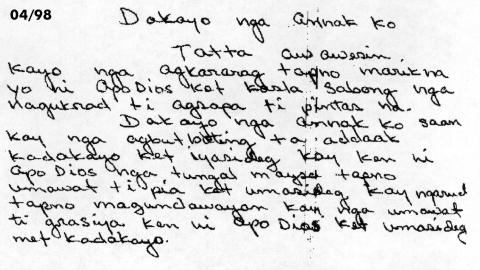 04/98
Dakayo nga annak ko
Tatta awawesin
kayo nga agkararag tapno marikna
yo ni Apo Dios ket kasla sabong nga
nagukrad ti agsapa ti pintas na.
Dakayo nga annak ko saan
kay nga agbutbuteng ta addaak
kadakayo ket iyasideg kay ken ni
Apo Dios nga tunggal maysa tapno
umawat ti pia ket umasideg kay ngarud
tapno magundawayan kay nga umawat
ti grasiya ken ni Apo Dios ket umasideg
met kadakayo.